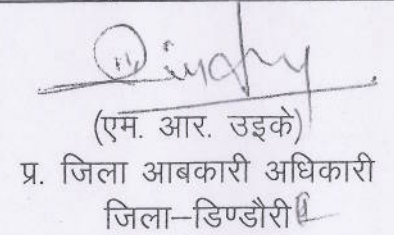 (एम. आर. उइके)
प्र. जिला आबकारी अधिकारी
जिला–डिण्डौरी